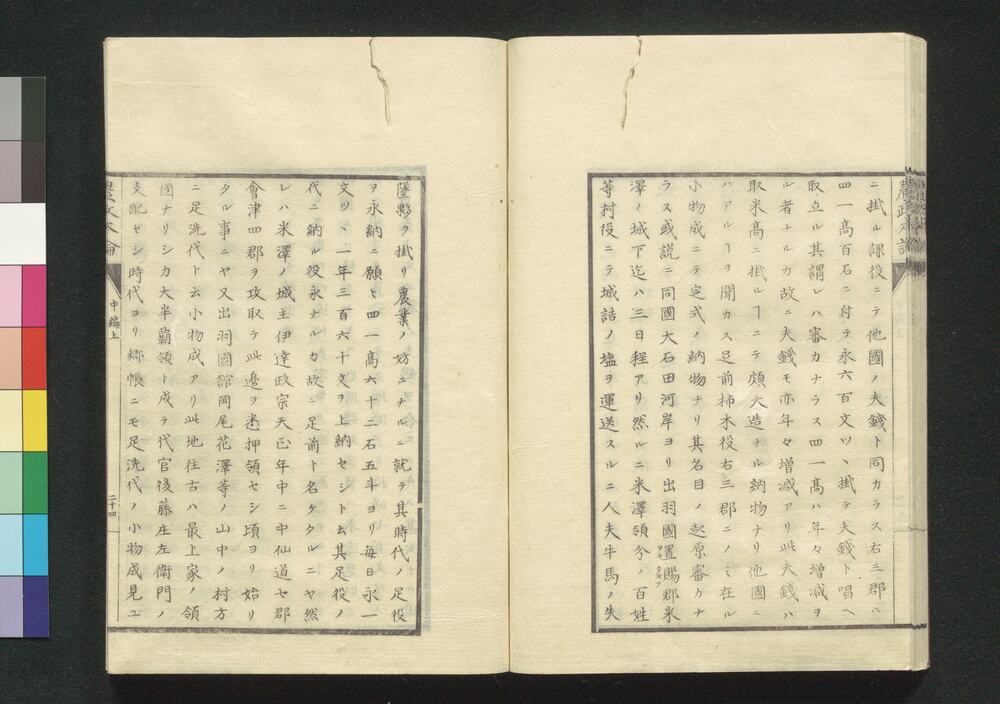 ニ掛ル課役ニテ他國ノ夫錢ト同カラス右三郡ハ
四一高百石ニ付テ永六百文ツヽ掛テ夫錢ト唱ヘ
取立ル其謂レハ審カナラス四一高ハ年々増減ヲ
ル者ナルカ故ニ夫錢モ亦年々増減アリ此夫錢ハ
取米高ニ掛ルヿニテ頗大造ナル納物ナリ他國ニ
ハアルヿヲ聞カス足前柿木役右三郡ニノミ在ル
小物成ニテ定式ノ納物ナリ其名目ノ起原審カナ
ラス或説ニ同國大石田河岸ヨリ出羽國置賜郡米
澤ノ城下迄ハ三日程アリ然ルニ米澤領分ノ百姓
等村役ニテ城詰ノ塩ヲ運送スルニ人夫牛馬ノ失
墜夥ク掛リ農業ノ妨ニナルニ就テ其時代ノ足役
ヲ永納ニ願ヒ四一高六十二石五斗ヨリ毎日永一
文ツヽ一年三百六十文ヲ上納セシト云其足役ノ
代ニ納ル役永ナルカ故ニ足前ト名ケタルニヤ然
レハ米澤ノ城主伊達政宗天正年中ニ中仙道七郡
會津四郡ヲ攻取テ此邊ヲ悉押領セシ頃ヨリ始リ
タル事ニヤ又出羽國舘岡尾花澤等ノ山中ノ村方
ニ足洗代ト云小物成アリ此地往古ハ最上家ノ領
國ナリシカ大半覇領ト成テ代官後藤庄左衛門ノ
支配セシ時代ヨリ郷帳ニモ足洗代ノ小物成見ユ
農政本論
中編上
二十四